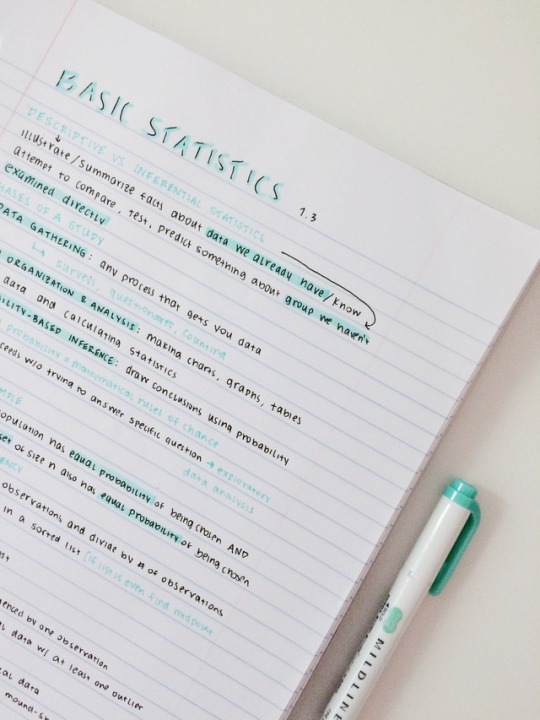 BASIC STATISTICS 1.3
DESCRIPTIVE VS INFERENTIAL STATISTICS
illustrate/summarize facts about data we already have/know
attempt to compare, test, predict something about group we haven't
examined directly
HASES OF A STUDY
DATA GATHERING: any process that gets you data
↳ surveys, questionaires, counting
ORGANIZATION & ANALYSIS: making charts, graphs, tables
data and calculating statistics
BILITY-BASED INFERENCE: draw conclusions using probability
probability = mathematical rules of chance
ceeds w/o trying to answer specific question → exploratory
data analysis
MPLE
opulation has equal probability of being chosen AND
set of size n also has equal probability of being chosen
ENCY
observations and divide by # of observations
in a sorted list [if list is even find midpoint
enced by one observation
al data w/ at least one outlier
cal data
mound-s
MILDLIN